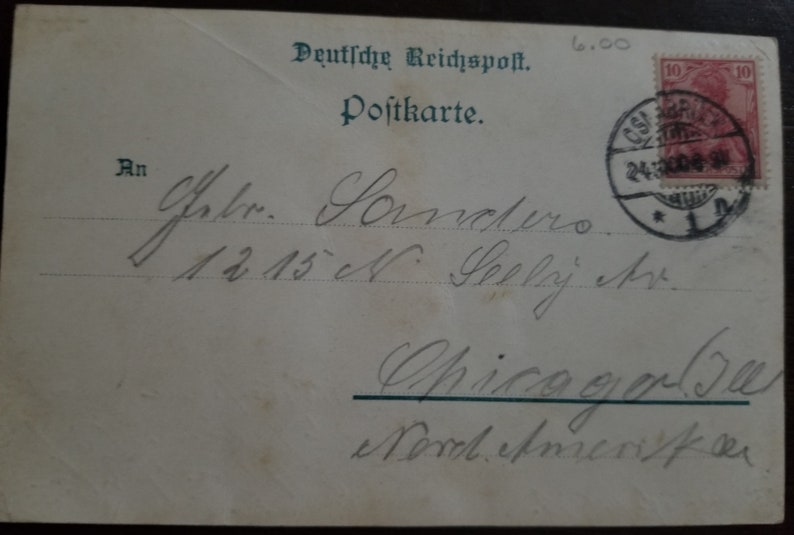 6.00
Deutsche Reichspost.
Postkarte.
10 10
An
Gebr. Sanders.
1215 N. Seeley Av.
Chicago (Ill
Nord. Amerika
* 1 n.